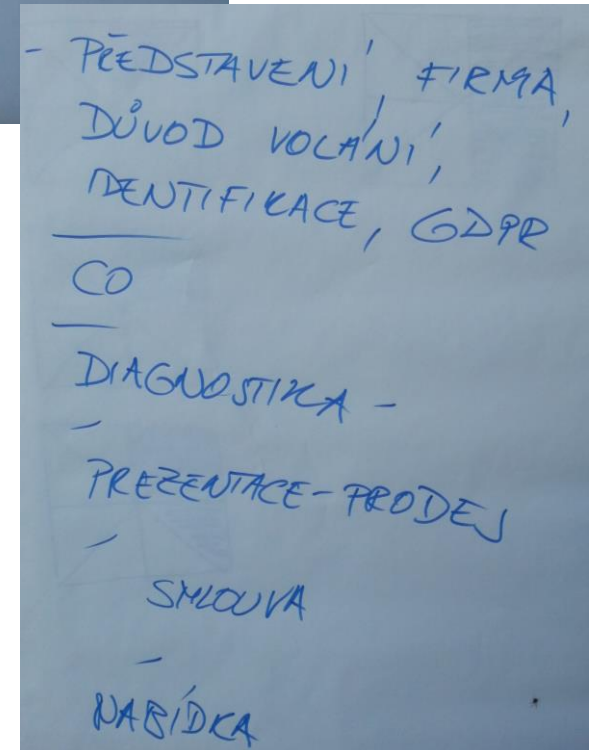 - PŘEDSTAVENÍ, FIRMA,
DŮVOD VOLÁNÍ,
IDENTIFIKACE, GDPR
CO
DIAGNOSTIKA -
-
PREZENTACE - PRODEJ
-
SMLOUVA
-
NABÍDKA